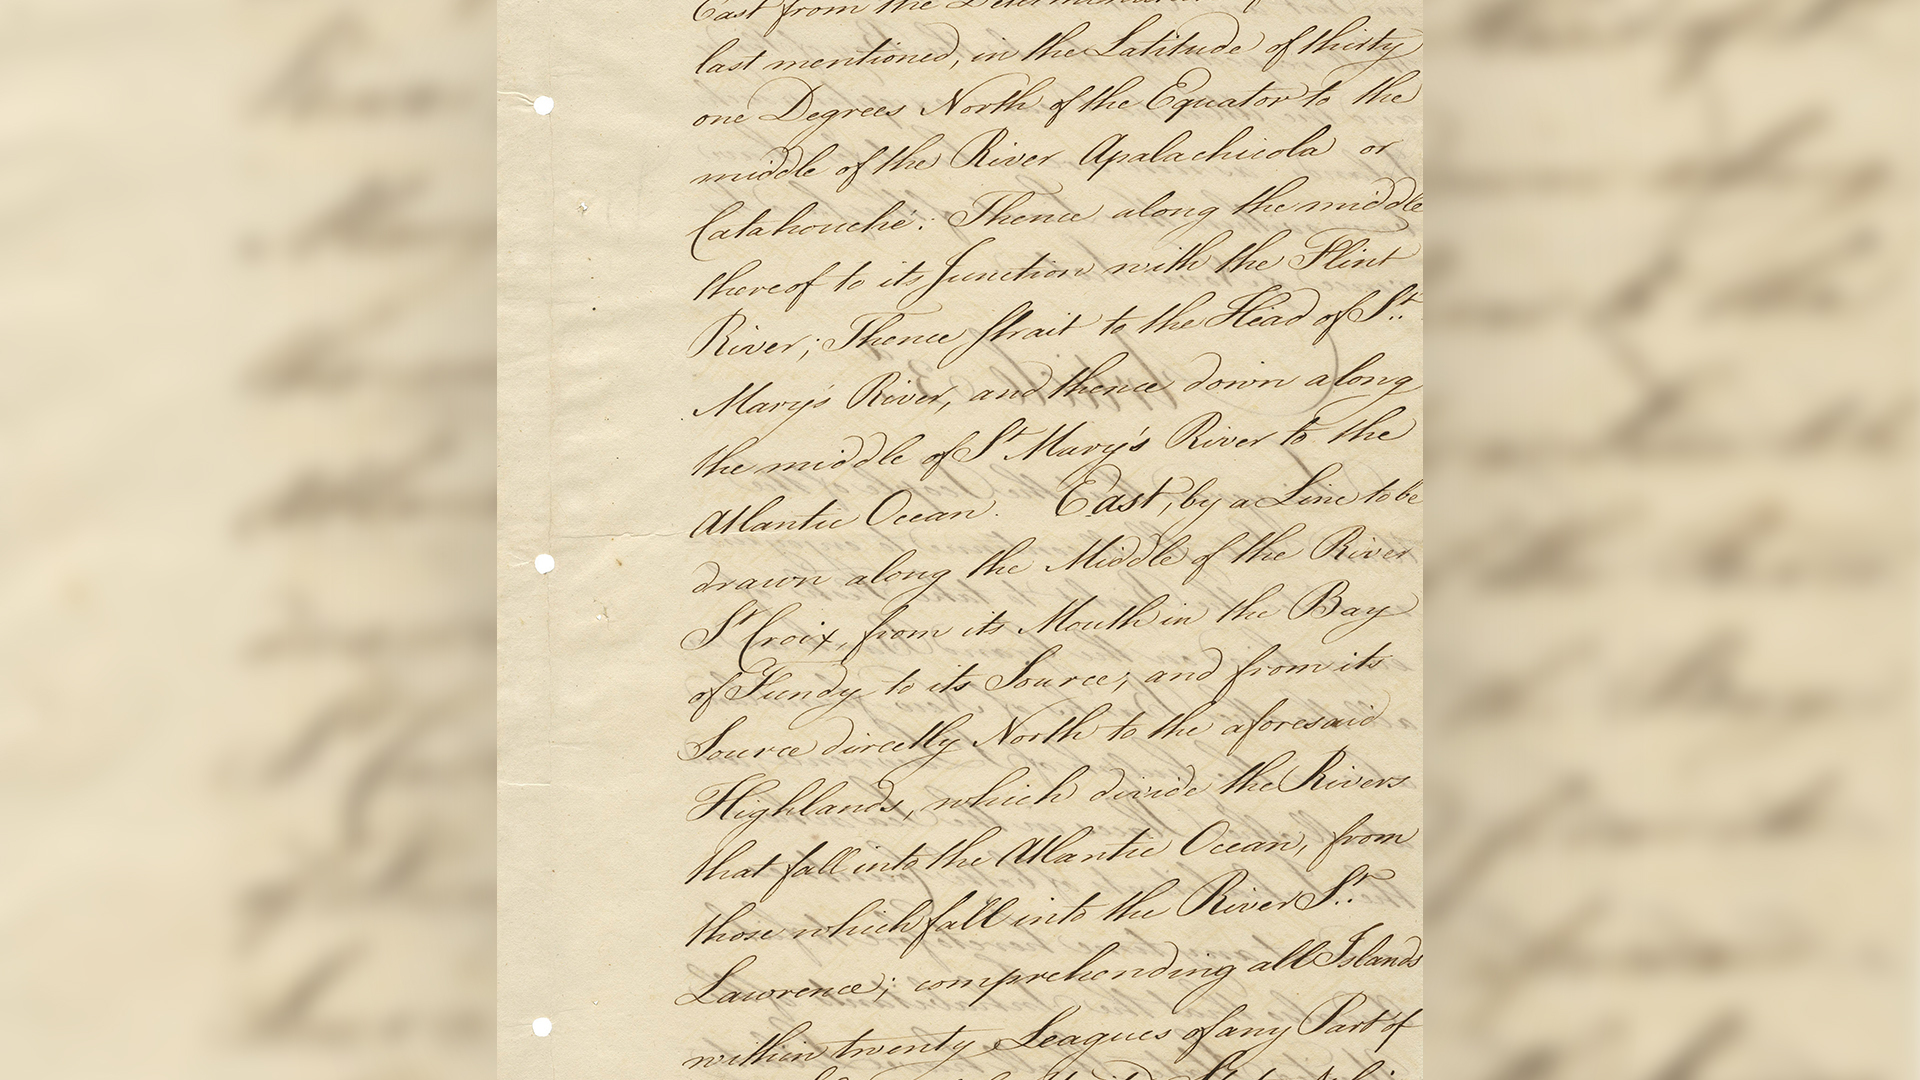 East from the Determination
last mentioned, in the Latitude of thirty
one Degrees North of the Equator to the
middle of the River Apalachicola or
Catahouche: Thence along the middle
thereof to its Junction with the Flint
River; Thence strait to the Head of St.
Mary's River, and thence down along
the middle of St Mary's River to the
Atlantic Ocean. East, by a Line to be
drawn along the Middle of the River
St Croix, from its Mouth in the Bay
of Fundy to its Source; and from its
Source directly North to the aforesaid
Highlands, which divide the Rivers
that fall into the Atlantic Ocean, from
those which fall into the River St.
Lawrence; comprehending all Islands
within twenty Leagues of any Part of